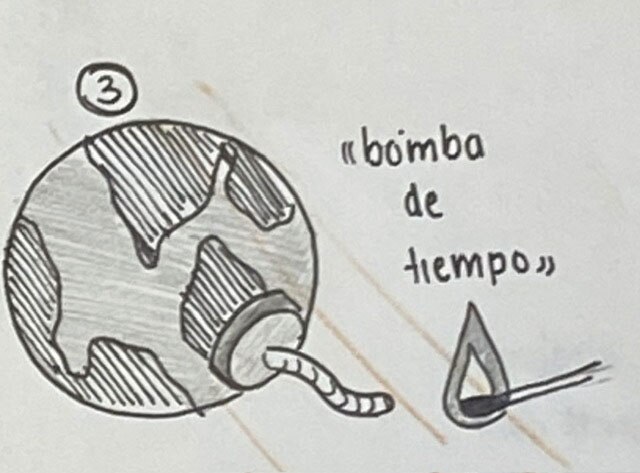 3
«bomba
de
tiempo»